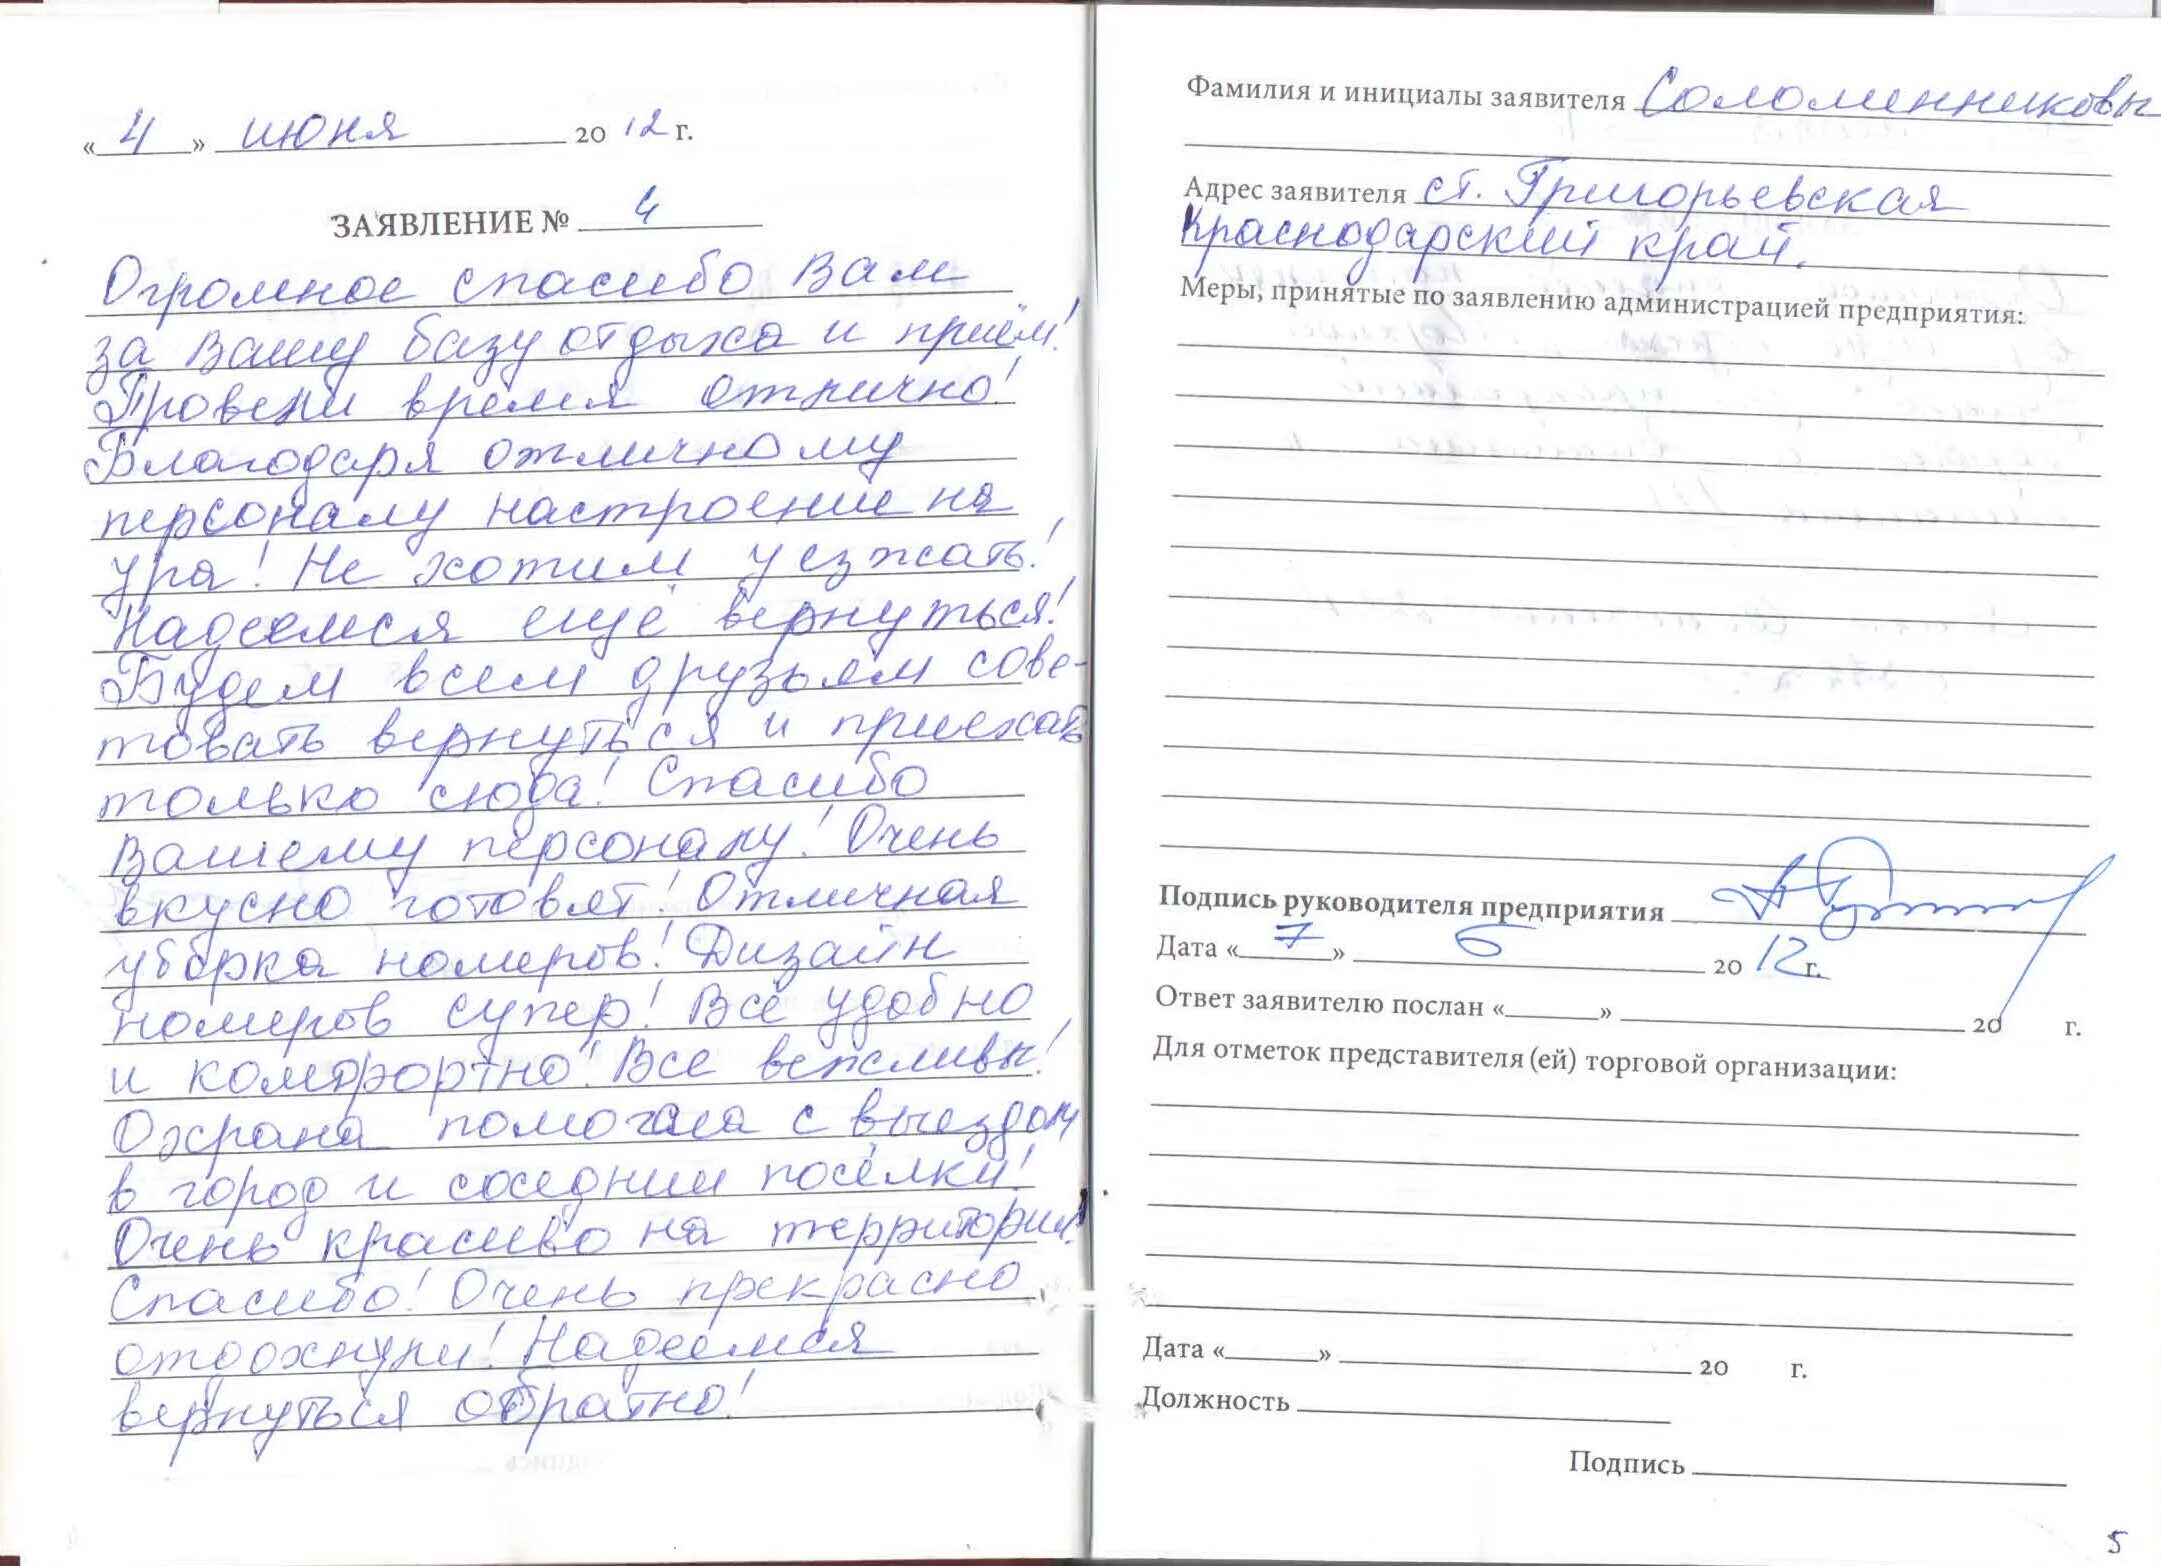 «4» июня 2012 г.
ЗАЯВЛЕНИЕ № 4
Огромное спасибо Вам
за Вашу базу отдыха и приём!
Провели время отлично!
Благодаря отличному
персоналу настроение на
ура! Не хотим уезжать!
Надеемся ещё вернуться!
Будем всем друзьям сове-
товать вернуться и приехать
только сюда! Спасибо
Вашему персоналу! Очень
вкусно готовят! Отличная
уборка номеров! Дизайн
номеров супер! Всё удобно
и комфортно! Все вежливы!
Охрана помогала с выездом
в город и соседнии посёлки!
Очень красиво на территории!
Спасибо! Очень прекрасно
отдохнули! Надеемся
вернуться обратно!
Фамилия и инициалы заявителя Соломенниковы
Адрес заявителя ст. Григорьевская
Краснодарский край.
Меры, принятые по заявлению администрацией предприятия:
Подпись руководителя предприятия
Дата «7» 6 2012 г.
Ответ заявителю послан «______» ______ 20 г.
Для отметок представителя (ей) торговой организации:
Дата «______» ______ 20 г.
Должность
Подпись
5